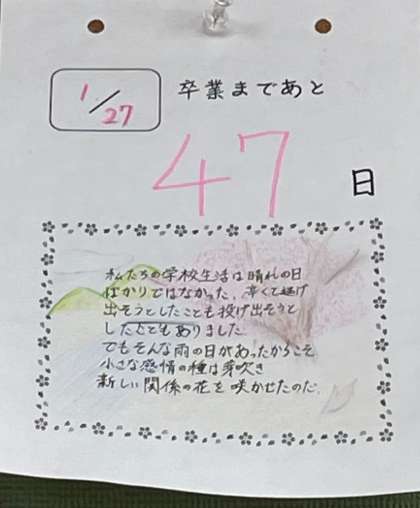 1/27
卒業まであと
47
日
私たちの学校生活は晴れの日
ばかりではなかった。辛くて逃げ
出そうとしたことも投げ出そうと
したこともありました
でもそんな雨の日があったからこそ
小さな感情の種は芽吹き
新しい関係の花を咲かせたのだ。